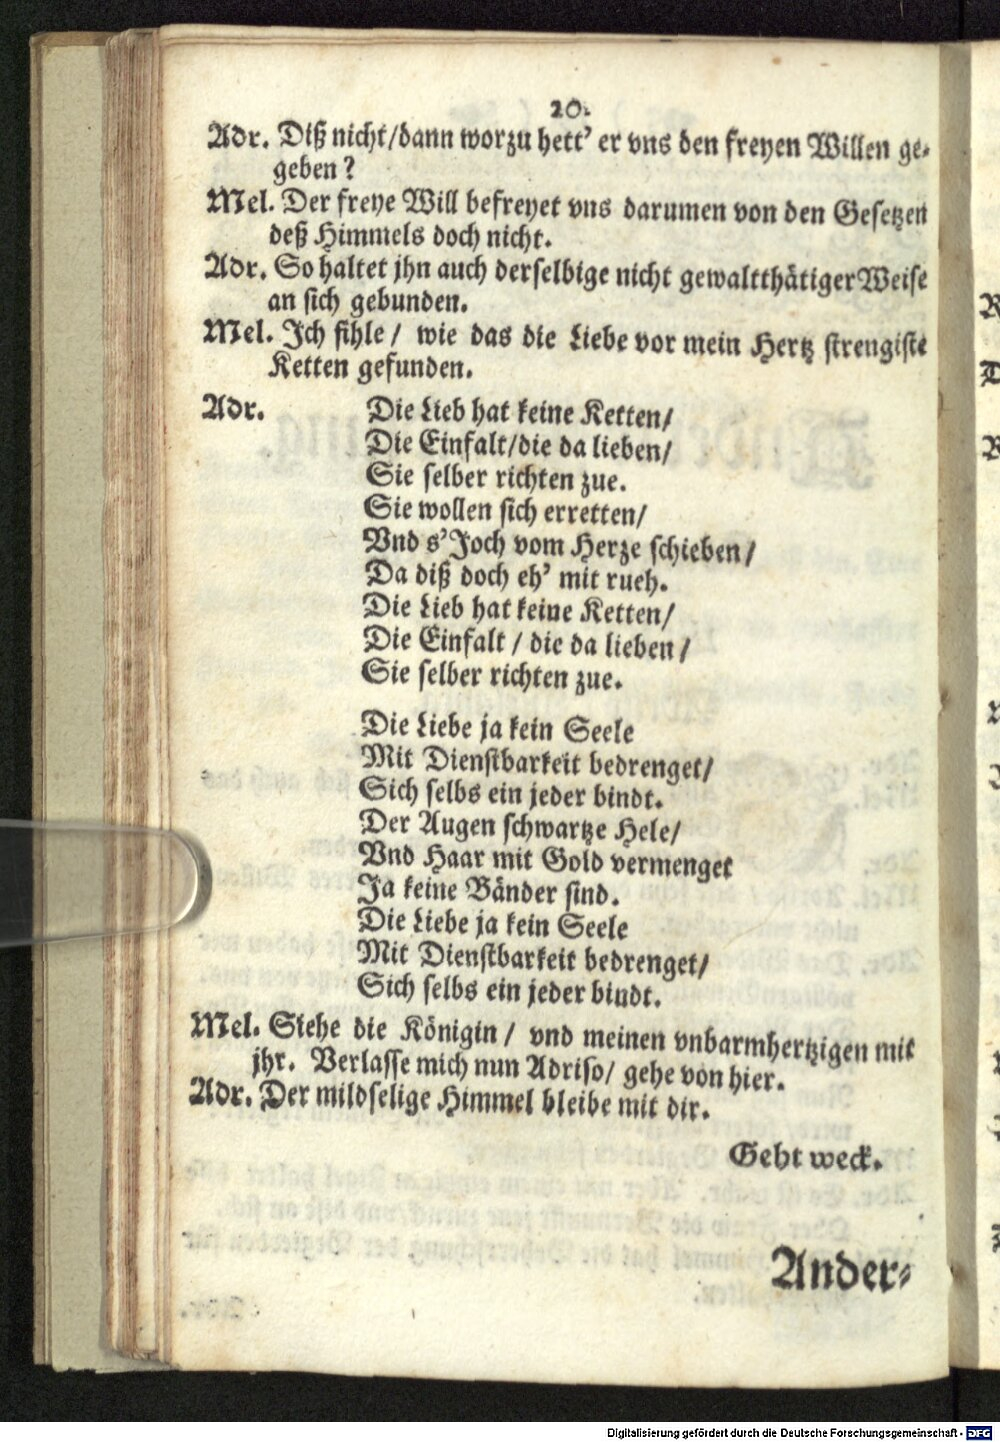 20.
Adr. Diß nicht/dann worzu hett' er vns den freyen Willen ge-
geben?
Mel. Der freye Will befreyet vns darumen von den Gesetzen
deß Himmels doch nicht.
Adr. So haltet jhn auch derselbige nicht gewaltthätiger Weise
an sich gebunden.
Mel. Ich fihle / wie das die Liebe vor mein Hertz strengiste
Ketten gefunden.
Adr. Die Lieb hat keine Ketten/
Die Einfalt/die da lieben/
Sie selber richten zue.
Sie wollen sich erretten/
Vnd s'Joch vom Herze schieben/
Da diß doch eh' mit rueh.
Die Lieb hat keine Ketten/
Die Einfalt / die da lieben/
Sie selber richten zue.
Die Liebe ja kein Seele
Mit Dienstbarkeit bedrenget/
Sich selbs ein jeder bindt.
Der Augen schwartze Hele/
Vnd Haar mit Gold vermenget
Ja keine Bänder sind.
Die Liebe ja kein Seele
Mit Dienstbarkeit bedrenget/
Sich selbs ein jeder bindt.
Mel. Siehe die Königin / vnd meinen vnbarmhertzigen mit
jhr. Verlasse mich nun Adriso/ gehe von hier.
Adr. Der mildselige Himmel bleibe mit dir.
Geht weck.
Ander-
Digitalisierung gefördert durch die Deutsche Forschungsgemeinschaft - DFG